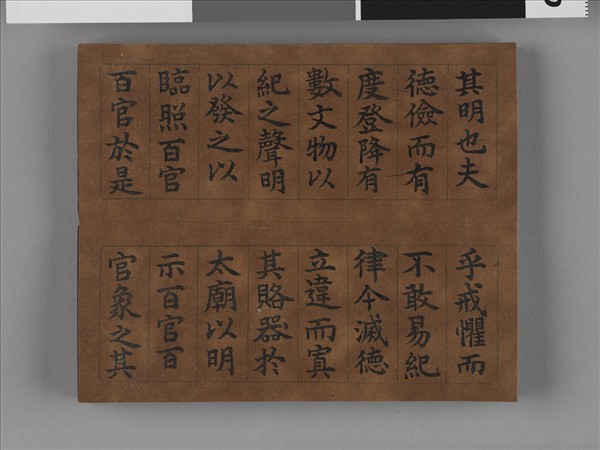 其明也夫
德儉而有
度登降有
數文物以
紀之聲明
以發之以
臨照百官
百官於是
乎戒懼而
不敢易紀
律今滅德
立違而寘
其賂器於
太廟以明
示百官百
官象之其